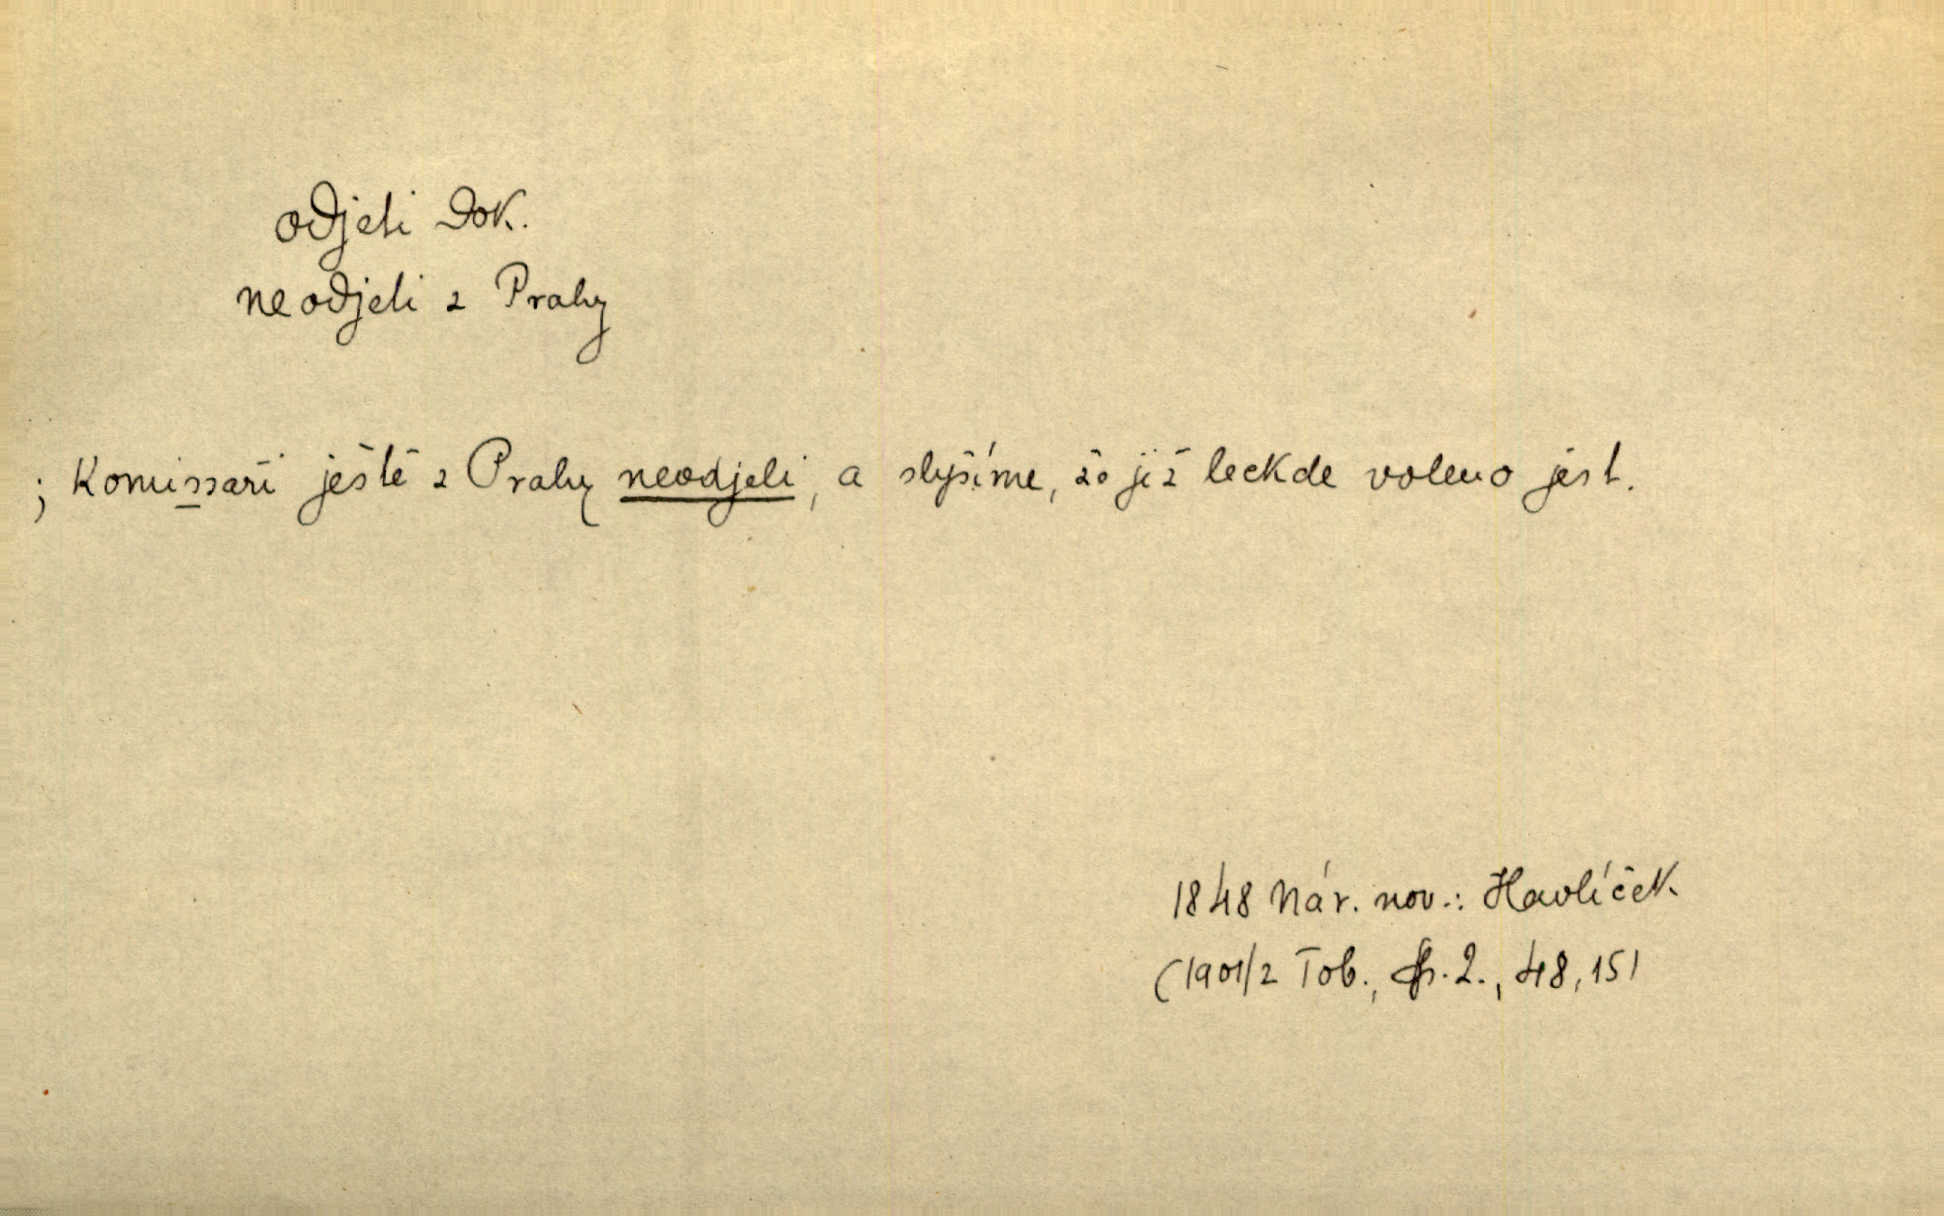 odjeti dok.
neodjeli z Prahy
; Komissaři ještě z Prahy neodjeli, a slyšíme, že již leckde voleno jest.
1848 Nár. nov.: Havlíček
(1901/2 Tob., 2., 48, 15)